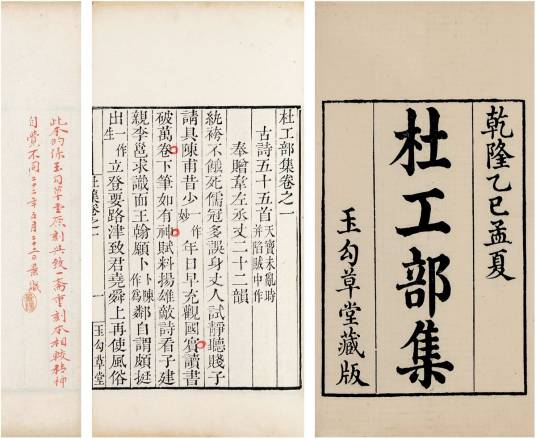 乾隆乙巳孟夏
杜工部集
玉勾草堂藏版
杜工部集卷之一
古詩五十五首天寶未亂時并陷賊中作
奉贈韋左丞丈二十二韻
紈袴不餓死儒冠多誤身丈人試靜聽賤子
請具陳甫昔少一作妙年日早充觀國賓讀書
破萬卷下筆如有神賦料揚雄敵詩看子建
親李邕求識面王翰願卜卜陳作為鄰自謂頗挺
出一作生立登要路津致君堯舜上再使風俗
杜集卷之一
一
玉勾草堂
此本的係玉勾草堂原刻與致一齋重刻本相較精神
自覺不同